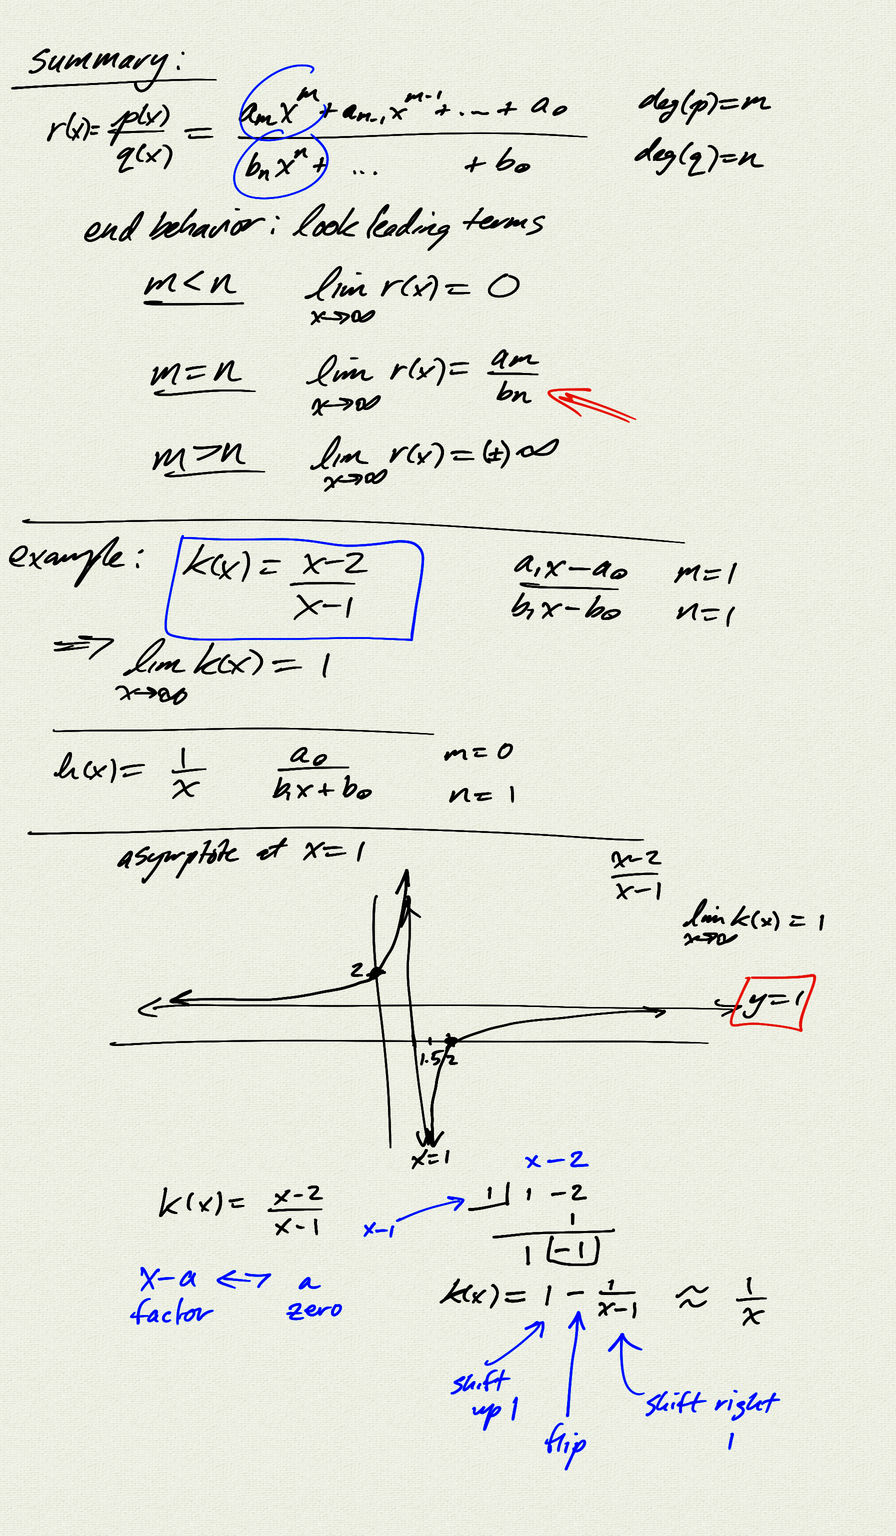 Summary:
r(x) = p(x)/q(x) = (a_m x^m + a_{n-1} x^{m-1} + ... + a_0)/(b_n x^n + ... + b_0) deg(p)=m
deg(q)=n
end behavior: look leading terms
m<n lim x→∞ r(x) = 0
m=n lim x→∞ r(x) = am/bn
m>n lim x→∞ r(x) = (±)∞
example: k(x) = (x-2)/(x-1) (a_1x-a_0)/(b_1x-b_0) m=1
n=1
⇒ lim x→∞ k(x) = 1
h(x) = 1/x a_0/(b_1x+b_0) m=0
n=1
asymptote at x=1
(x-2)/(x-1)
lim x→∞ k(x) = 1
2
y=1
1.5 2
x=1
x-2
k(x) = (x-2)/(x-1) x-1 → 1| 1 -2
1
1 -1
x-a ↔ a
factor zero
k(x) = 1 - 1/(x-1) ≈ 1/x
shift
up 1
flip
shift right
1